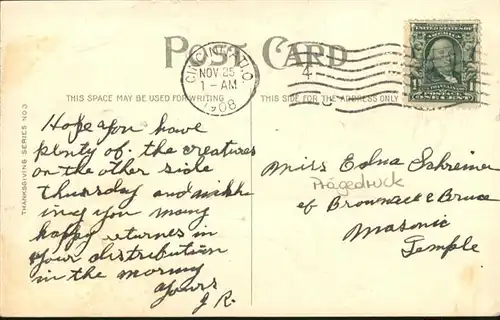 POST CARD
CINCINNATI, O.
NOV 25
1-AM
1908
4
C
UNITED STATES OF AMERICA
THIS SPACE MAY BE USED FOR WRITING
THIS SIDE FOR THE ADDRESS ONLY
THANKSGIVING SERIES NO 3
Hope you have
plenty of the creatures
on the other side
thursday and wishing
ing you many
happy returnes in
your distribution
in the morning
yours
J R.
Miss Edna Schreiner
Prägedruck
of Brownack & Bruce
Masonic
Temple